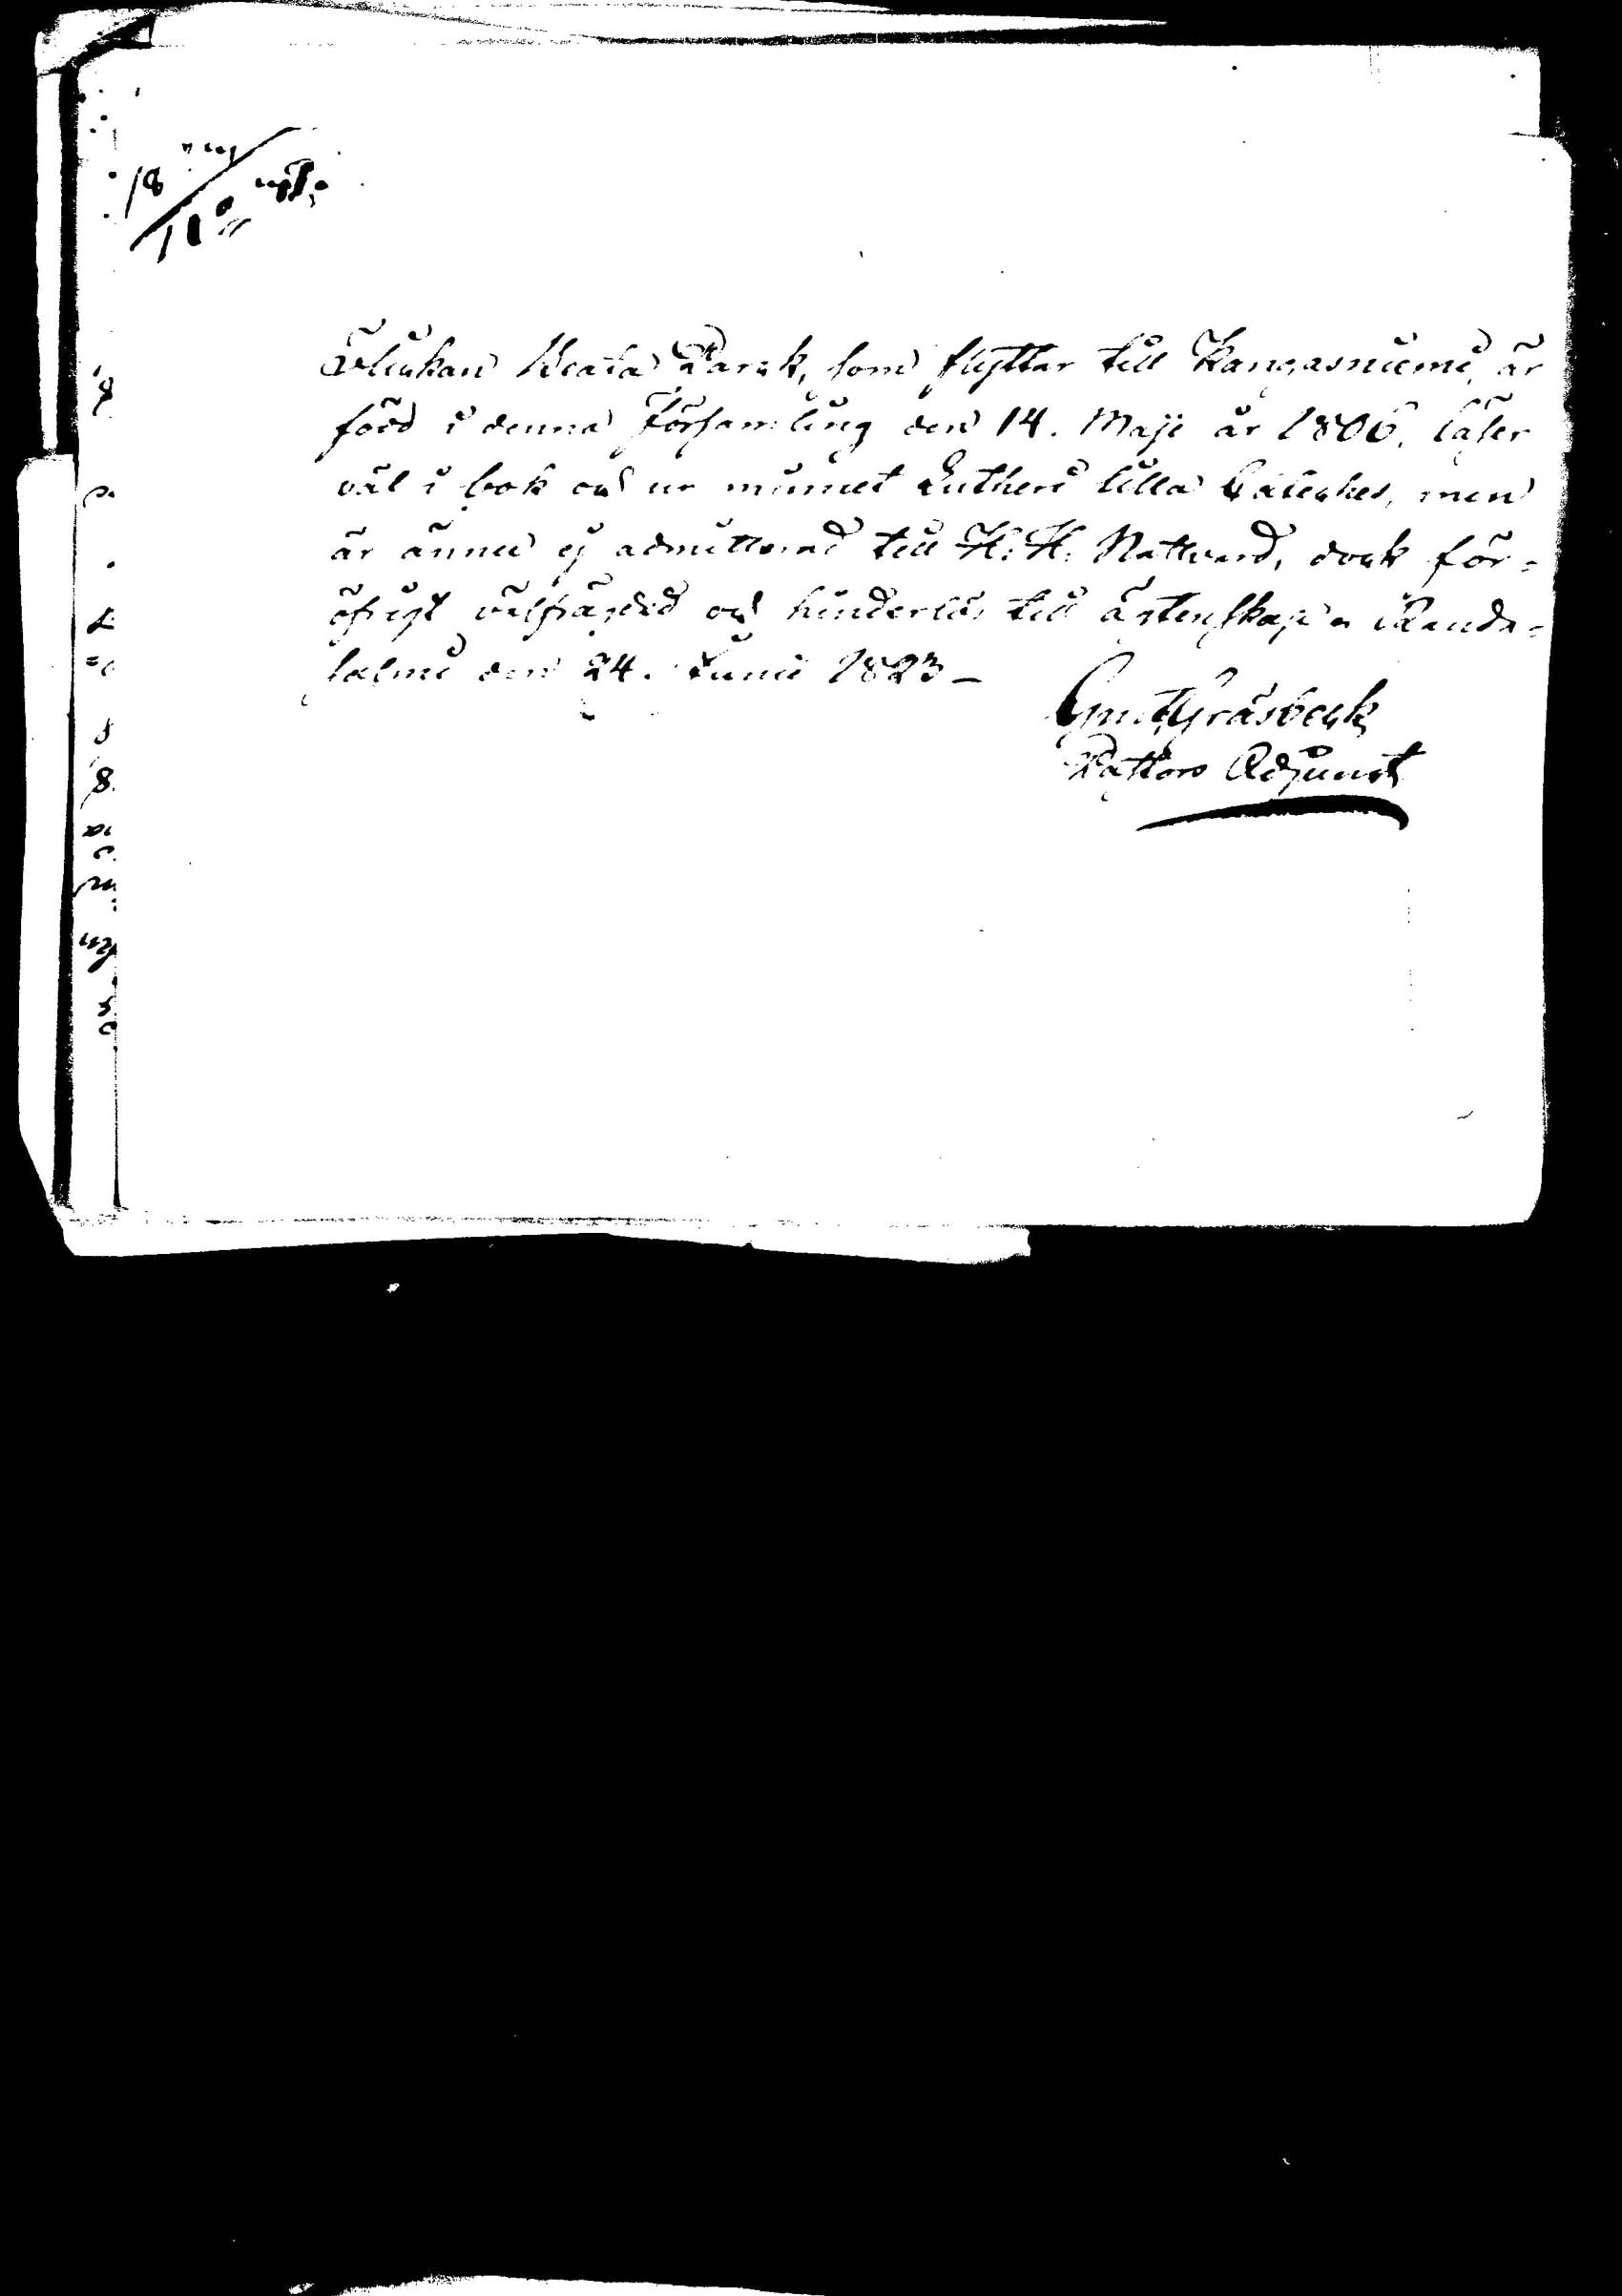 Flickan Beata Parck, som flyttar till Kangasniemi, är
född i denna Församling den 14. Maji år 1806, läser
väl i bok och ur minnet Lutheri lilla Cateches, men
är ännu ej admitterad till H. H. Nattvard, dock för=
öfrigt välfräjdad och hinderlös till äktenskap. Randa=
salmi den 24. Junii 1823 –
Gust. Gräsbeck
Pastors Adjunct